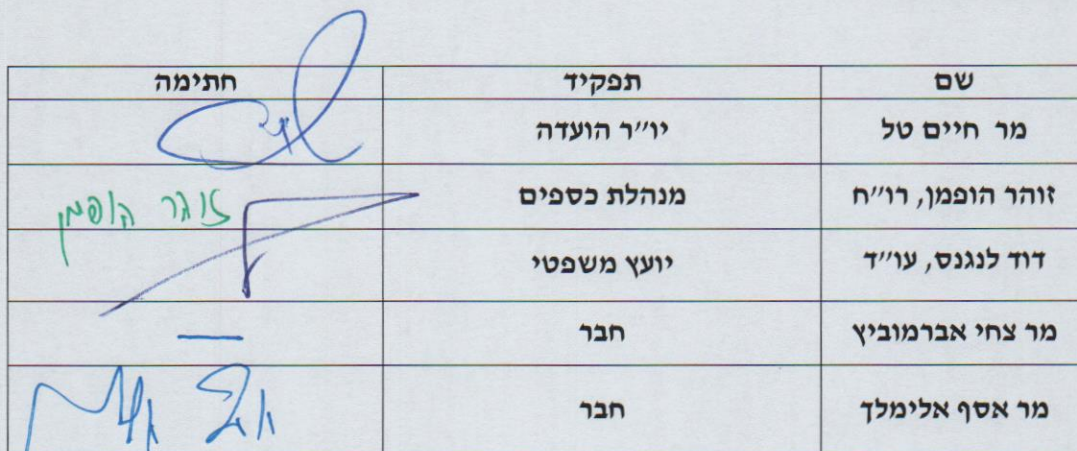 שם תפקיד חתימה
מר חיים טל יו״ר הועדה
זוהר הופמן, רו״ח מנהלת כספים זוהר הופמן
דוד לנגנס, עו״ד יועץ משפטי
מר צחי אברמוביץ חבר —
מר אסף אלימלך חבר